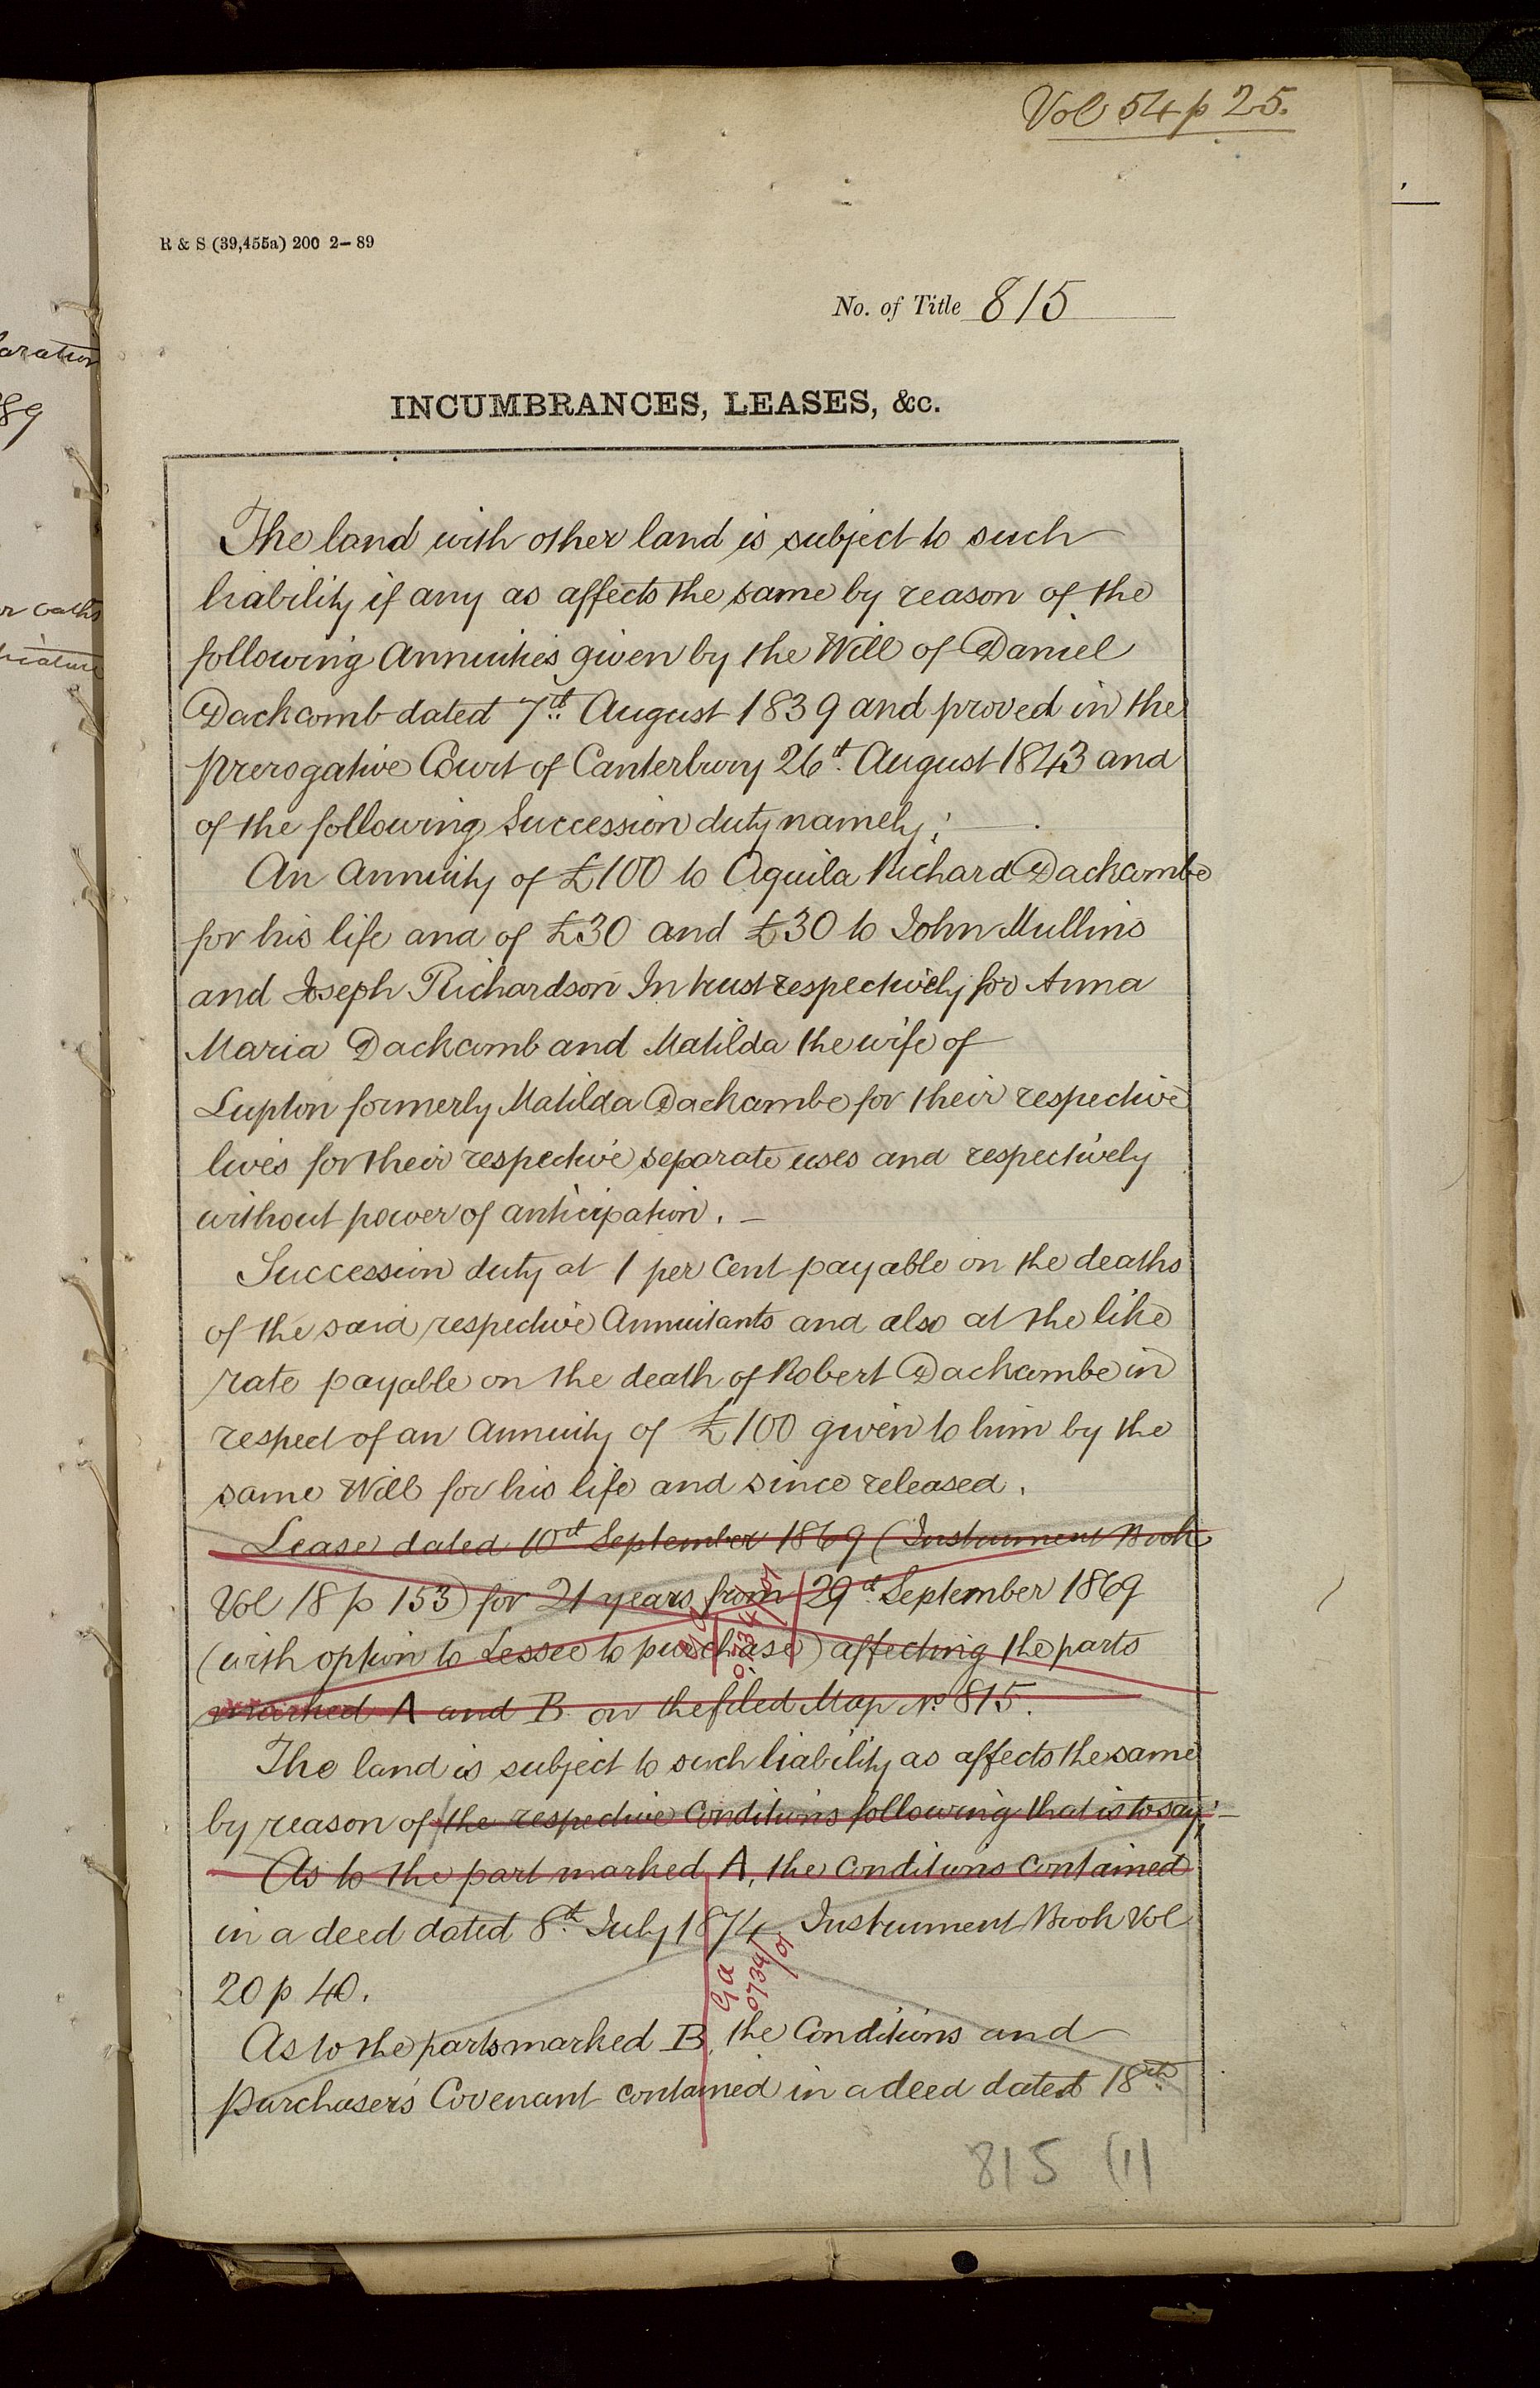 Vol 54 p 25.
R & S (39,455a) 200 2–89
No. of Title 815
INCUMBRANCES, LEASES, &c.
The land with other land is subject to such
liability if any as affects the same by reason of the
following Annuities given by the Will of Daniel
Dackcomb dated 7th August 1839 and proved in the
prerogative Court of Canterbury 26th August 1843 and
of the following Succession duty namely;
An Annuity of £100 to Aquila Richard Dackcombe
for his life and of £30 and £30 to John Mullins
and Joseph Richardson In trust respectively for Anna
Maria Dackcomb and Matilda the wife of
Lupton formerly Matilda Dackcombe for their respective
lives for their respective separate uses and respectively
without power of anticipation. –
Succession duty at 1 per Cent payable on the deaths
of the said respective Annuitants and also at the like
rate payable on the death of Robert Dackcombe in
respect of an Annuity of £100 given to him by the
same Will for his life and since released.
Lease dated 10th September 1869 (Instrument Book
Vol 18 p 153) for 21 years from 29th September 1869
(with option to Lessee to purchase) affecting the parts
marked A and B on the filed Map No 815.
The land is subject to such liability as affects the same
by reason of the respective Conditions following that is to say; –
As to the part marked A, the Conditions contained
in a deed dated 8th July 1874 Instrument Book Vol
20 p 40.
0734/01
As to the parts marked B, the Conditions and
Purchaser's Covenant contained in a deed dated 18th
815 (1)
aration
89
or oaths